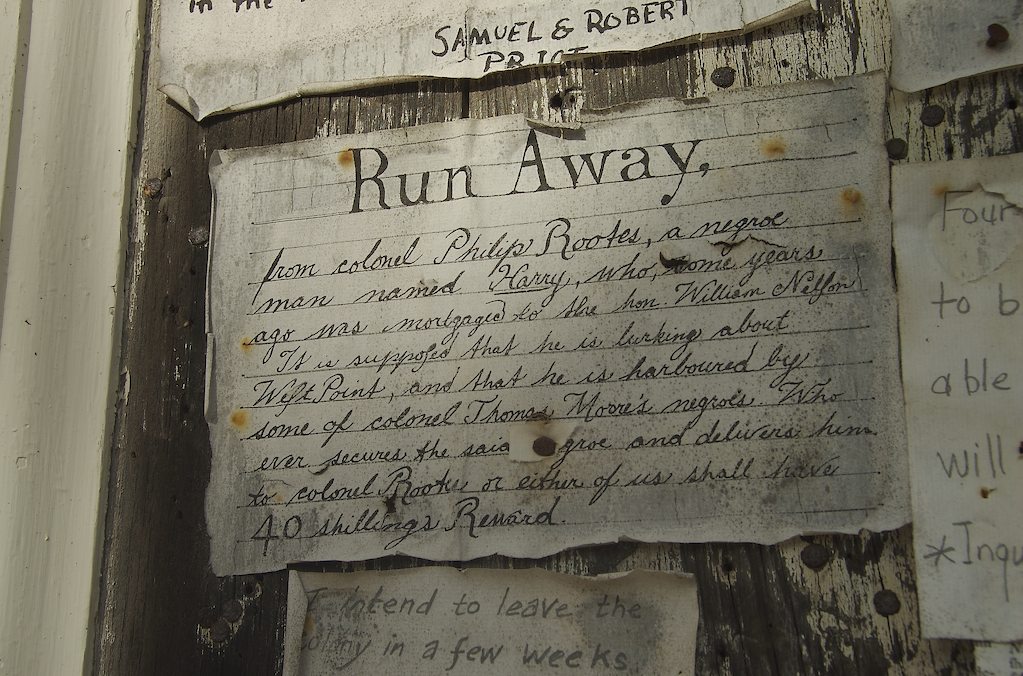 in the
SAMUEL & ROBERT
Run Away,
from colonel Philip Rootes, a negroe
man named Harry, who, some years
ago was mortgaged to the hon. William Nelson
It is supposed that he is lurking about
West Point, and that he is harboured by
some of colonel Thomas Moore's negroes. Who
ever secures the said groe and delivers him
to colonel Rootes or either of us shall have
40 shillings Reward.
I intend to leave the
colony in a few weeks
Four
to b
able
will
*Inqu